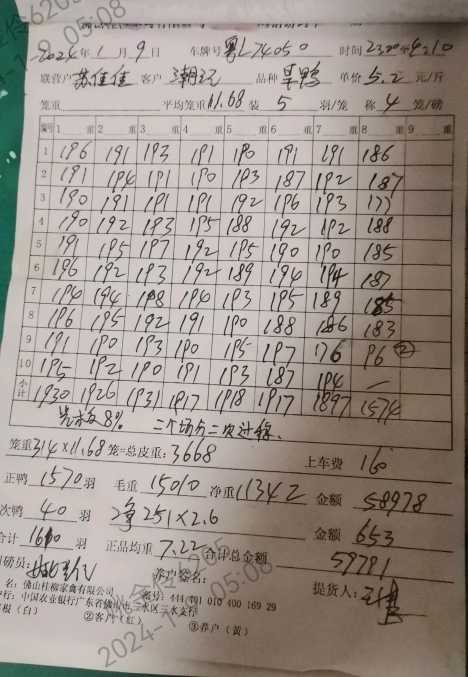 2024年1月9日 车牌号 粤L74050 时间
联营户 苏佳佳 客户 潮江 品种 旱鸭 单价 5.2 元/斤
笼重 平均笼重 11.68 装 5 羽/笼 称 4 笼/磅
编号 1 重 2 重 3 重 4 重 5 重 6 重 7 重 8 重 9 重
1 196 191 193 191 190 191 191 186
2 191 194 191 190 193 187 192 187
3 190 191 191 191 192 196 193 177
4 190 192 193 195 188 192 192 188
5 191 195 197 192 195 190 190 185
6 196 192 193 192 189 194 194 187
7 194 194 198 194 193 195 189 185
8 196 195 192 191 190 188 186 183
9 191 190 193 190 195 197 176 96 ②
10 195 192 190 191 193 187 194 —
小计 1930 1926 1931 1917 1918 1917 1897 1574
8% 二个场分二次过称.
笼重 314×11.68 笼=总皮重: 3668 上车费 160
正鸭 1570 羽 毛重 15010 净重 11342 金额 58978
次鸭 40 羽 净251×2.6 金额 653
合计 1610 羽 正品均重 7.22 合计总金额 59791
司磅员: 养户签名: 提货人:
名: 佛山桂柳家禽有限公司
行: 中国农业银行广东省佛山市三水区三水支行 账号: 444 701 010 400 169 29
(白) ②客户(红) ③养户(黄)
2024-1-9 05:08